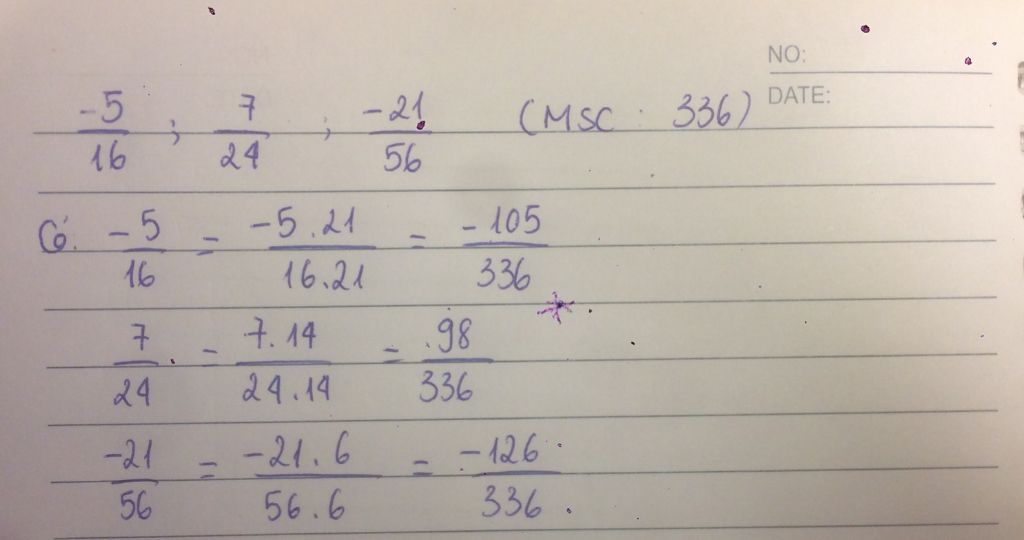 NO:
DATE:
-5/16 ; 7/24 ; -21/56 (MSC : 336)
Có: -5/16 = -5.21/16.21 = -105/336
7/24 = 7.14/24.14 = 98/336
-21/56 = -21.6/56.6 = -126/336.